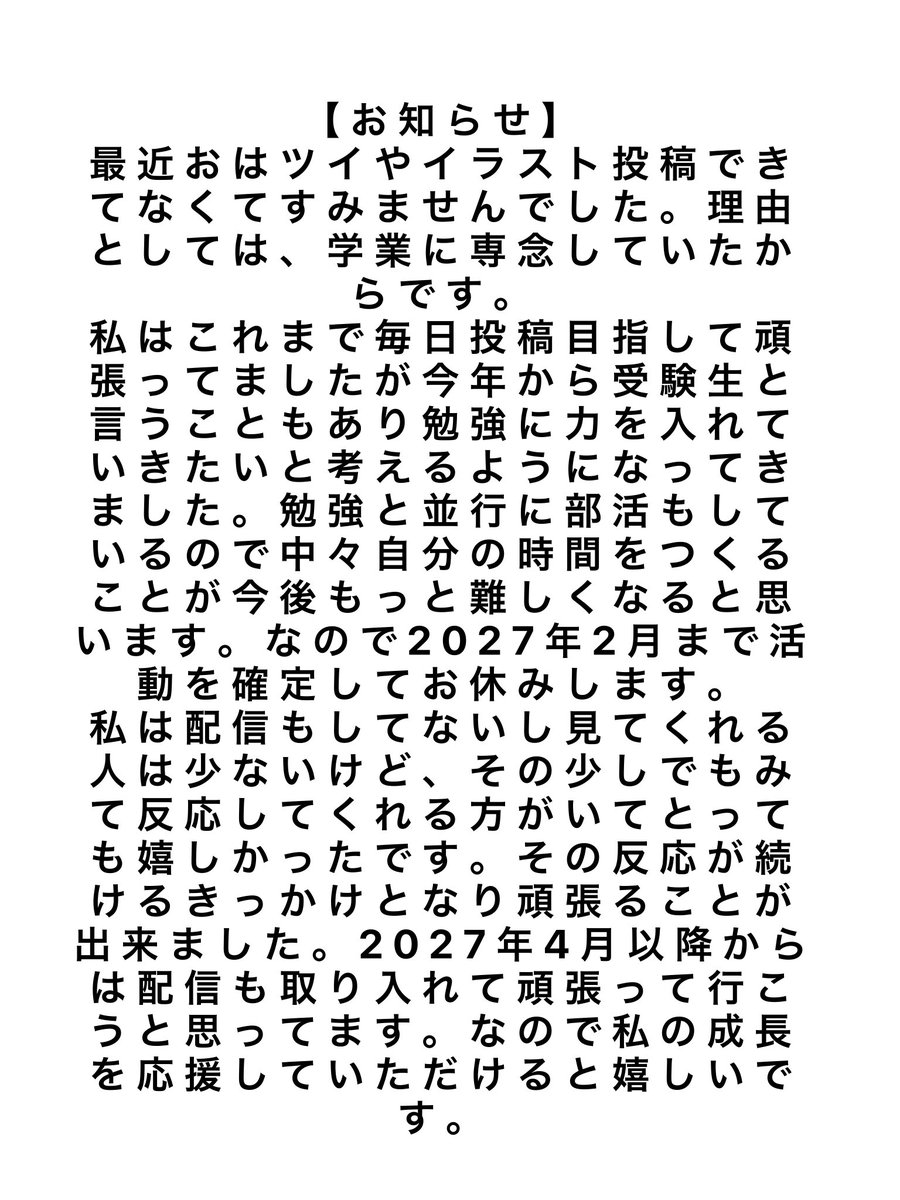 【お知らせ】
最近おはツイやイラスト投稿でき
てなくてすみませんでした。理由
としては、学業に専念していたか
らです。
私はこれまで毎日投稿目指して頑
張ってましたが今年から受験生と
言うこともあり勉強に力を入れて
いきたいと考えるようになってき
ました。勉強と並行に部活もして
いるので中々自分の時間をつくる
ことが今後もっと難しくなると思
います。なので2027年2月まで活
動を確定してお休みします。
私は配信もしてないし見てくれる
人は少ないけど、その少しでもみ
て反応してくれる方がいてとって
も嬉しかったです。その反応が続
けるきっかけとなり頑張ることが
出来ました。2027年4月以降から
は配信も取り入れて頑張って行こ
うと思ってます。なので私の成長
を応援していただけると嬉しいで
す。